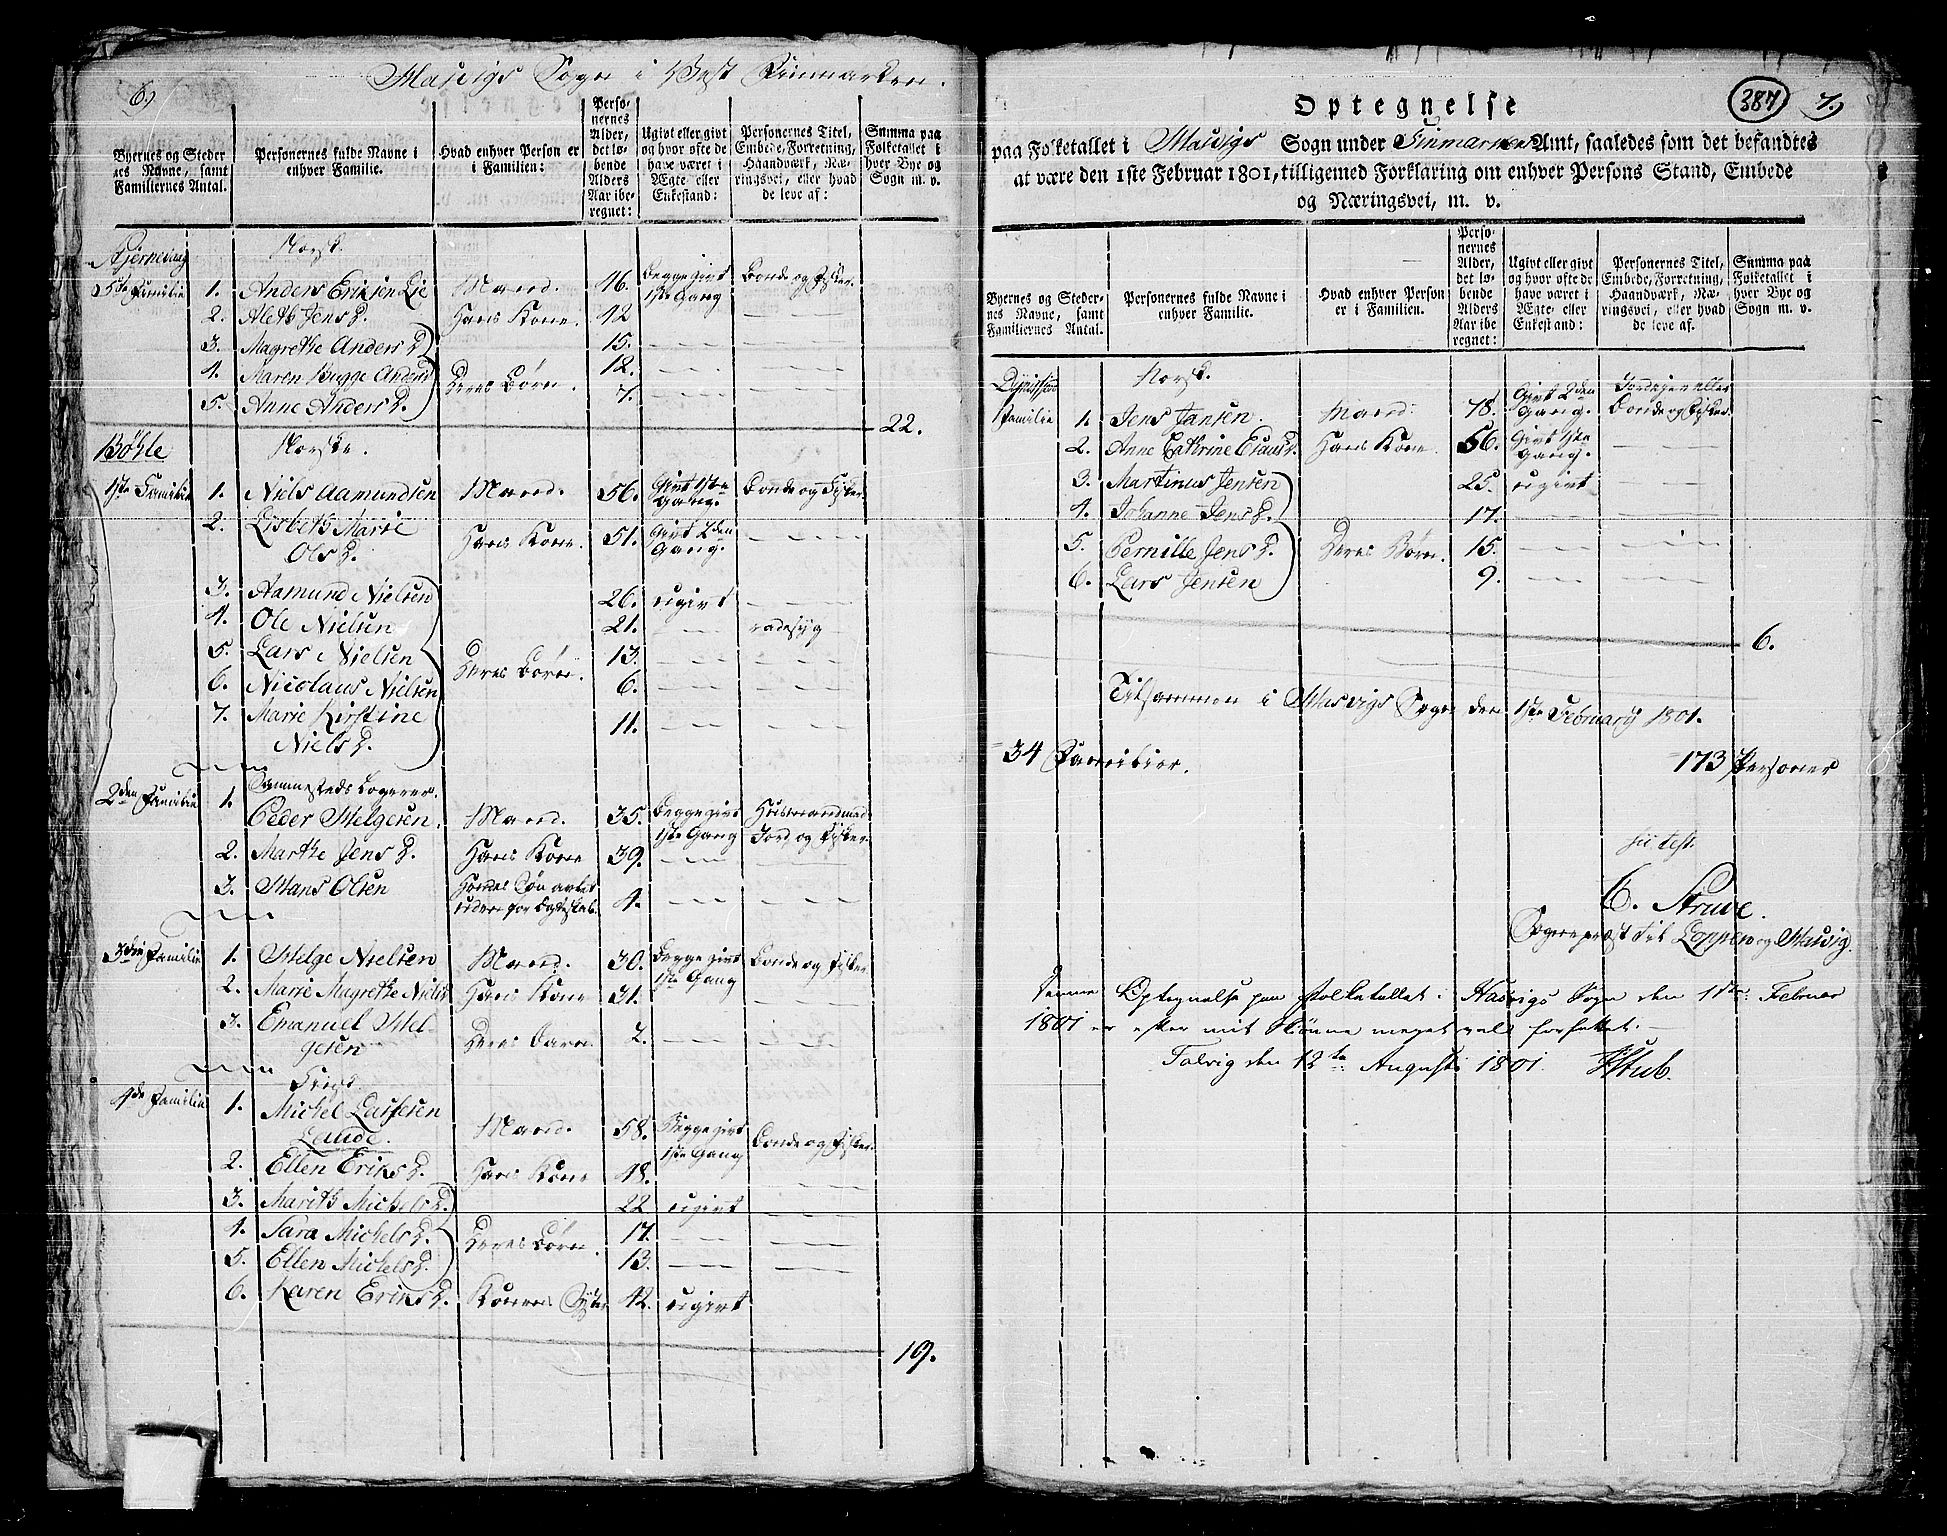 6) Hasvigs Sogn i Vest Finmarken.
Byernes og Steder
nes Navne, samt
Familiernes Antal.
Personernes fulde Navne i
enhver Familie.
Hvad enhver Person er
i Familien:
Perso-
nernes
Alder,
det lø-
bende
Alders
Aar ibe-
regnet:
Ugivt eller givt
og hvor ofte de
have været i
Ægte- eller
Enkestand:
Personernes Titel,
Embede, Forretning,
Haandværk, Næ-
ringsvei, eller hvad
de leve af:
Summa paa
Folketallet i
hver Bye og
Sogn m. v.
Norsk.
5te Familie 1. Anders Eriksen Lie Mand. 46. Begge givt 1ste Gang Bonde og Fisker.
2. Aleth Jens D. Hans Kone. 42
3. Magrethe Anders D. 15.
4. Maren Bugge Anders D. 12.
Deres Børn.
5. Anne Anders D. 7.
22.
Bøhle Norske.
1ste Familie 1. Niels Aamundsen Mand. 56. Givt 1ste Gang. Bonde og Fisker
2. Lisbeth Marie
Ols D. Hans Kone. 51. Givt 2den Gang.
3. Aamund Nielsen 26. ugivt
4. Ole Nielsen 21. radesyg
5. Lars Nielsen Deres Børn. 13.
6. Nicolaus Nielsen 6.
7. Marie Kirstine
Niels D. 11.
2den Familie 1. Sammesteds Logerer.
Peder Helgesen. Mand. 35. Begge givt 1ste Gang Huusmand med Jord og Fisker
2. Marthe Jens D. Hans Kone 39.
3. Hans Olsen Hendes Søn avlet uden for Ægteskab. 4.
3die Familie 1. Helge Nielsen Mand. 30. Begge givt 1ste Gang Bonde og Fisker
2. Marie Magrethe Niels D. Hans Kone 31.
3. Emanuel Hel-
gesen Deres Barn. 2.
4de Familie 1. Michel Larssen
Mand. 58. Begge givt 1ste Gang Bonde og Fisker
2. Ellen Eriks D. Hans Kone 48.
3. Marith Michels D. 22 ugivt
4. Sara Michels D. Deres Børn. 17.
5. Ellen Michels D. 13.
6. Karen Eriks D. Konens Syster 42. ugivt
19.
387 7)
Optegnelse
paa Folketallet i Hasvigs Sogn under Finmarkens Amt, saaledes som det befandtes
at være den 1ste Februar 1801, tilligemed Forklaring om enhver Persons Stand, Embede
og Næringsvei, m. v.
Byernes og Steder-
nes Navne, samt
Familiernes Antal.
Personernes fulde Navne i
enhver Familie.
Hvad enhver Person
er i Familien.
Perso-
nernes
Alder,
det lø-
bende
Alders
Aar ibe
regnet:
Ugivt eller givt
og hvor ofte de
have været i
Ægte- eller
Enkestand:
Personernes Titel,
Embede, Forretning,
Haandværk, Næ-
ringsvei, eller hvad
de leve af.
Summa paa
Folketallet i
hver Bye og
Sogn m. v.
Norsk.
1 Familie 1. Jens Jansen. Mand. 78. Givt 2den Gang. Jordejer eller Bonde og Fisker.
2. Anne Cathrine Claus D. Hans Kone. 56. Givt 1ste Gang.
3. Martinus Jensen 25. ugivt
4. Johanne Jens D. 17.
5. Pernille Jens D. Deres Børn. 15.
6. Lars Jensen 9.
6.
Tilsammen i Hasvigs Sogn den 1ste February 1801.
34 Familier. 173 Personer
C. Struve.
Sogneprest til Loppen og Hasvig.
Denne Optegnelse paa Folketallet i Hasvigs Sogn den 1ste Februar
1801 er efter mit Skiønne meget vel forfattet.
Talvig den 12te August 1801. Stub.